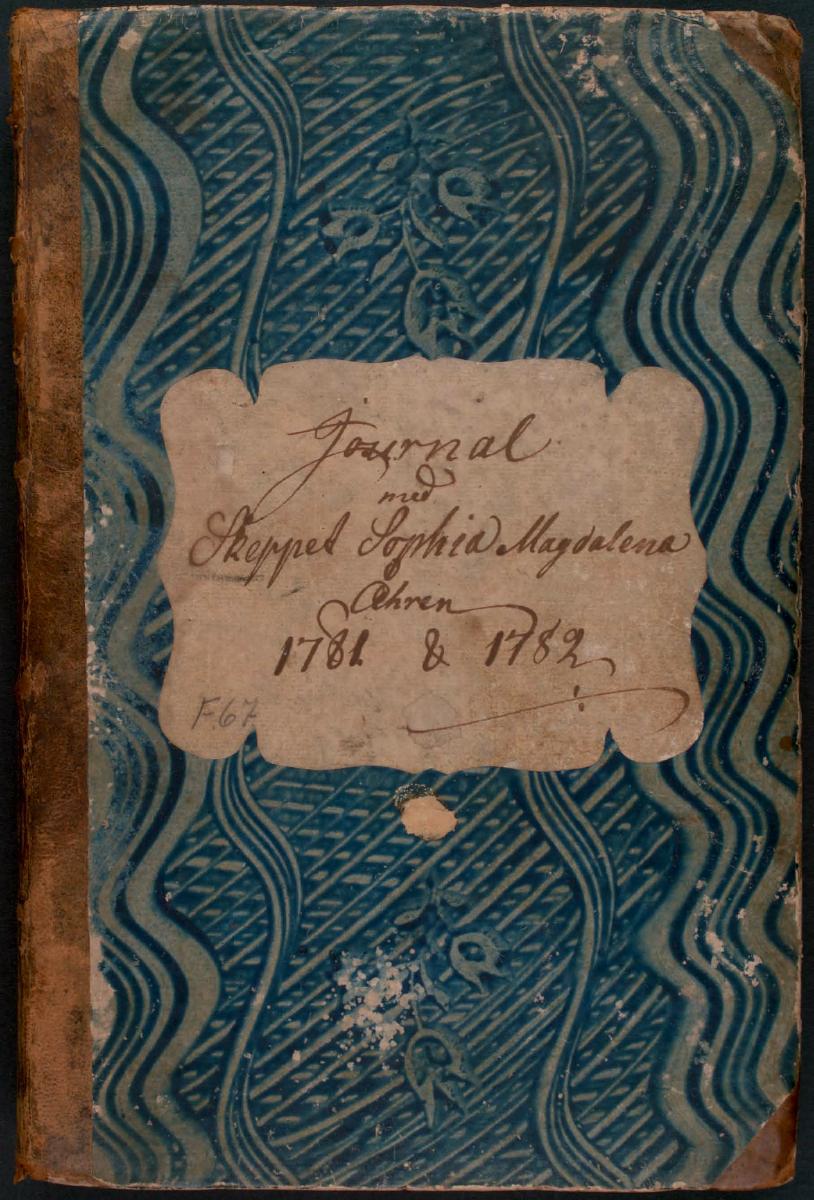 Journal
med
Skeppet Sophia Magdalena
Åhren
1781 & 1782
F.67